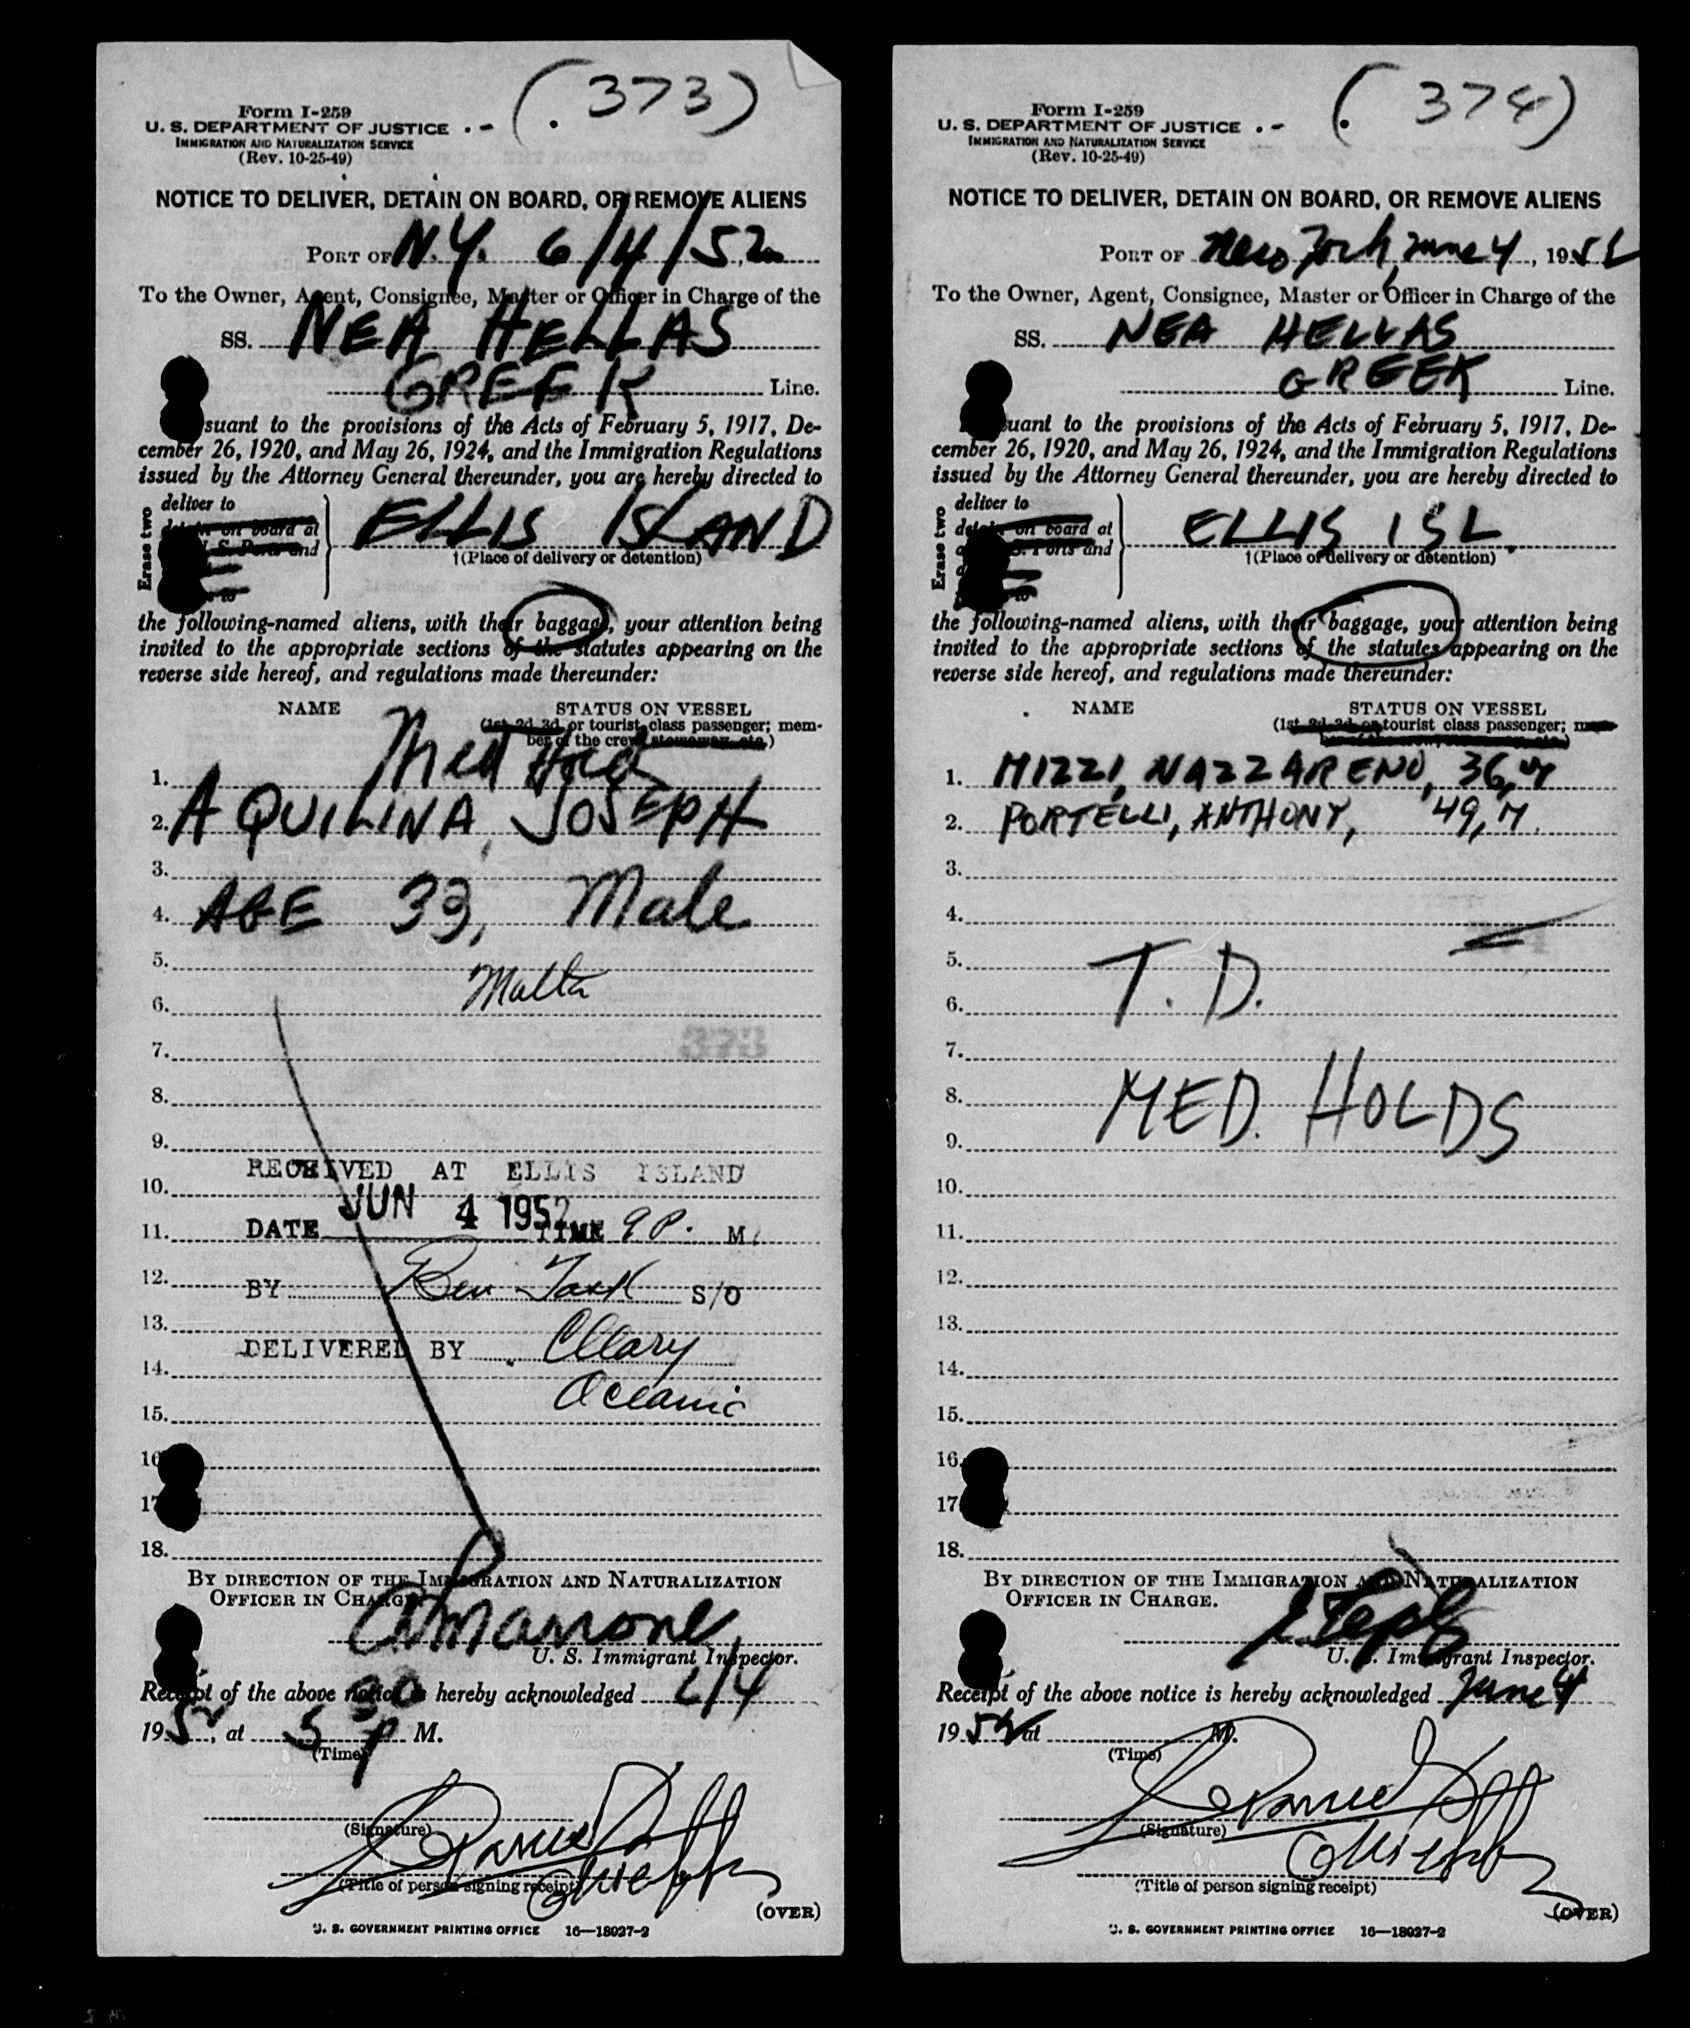 (373)
Form I-259
U. S. DEPARTMENT OF JUSTICE
IMMIGRATION AND NATURALIZATION SERVICE
(Rev. 10-25-49)
NOTICE TO DELIVER, DETAIN ON BOARD, OR REMOVE ALIENS
PORT OF N.Y. 6/4/52
To the Owner, Agent, Consignee, Master or Officer in Charge of the
SS. NEA HELLAS
GREEK Line.
suant to the provisions of the Acts of February 5, 1917, De-
cember 26, 1920, and May 26, 1924, and the Immigration Regulations
issued by the Attorney General thereunder, you are hereby directed to
Erase two
deliver to
on board at
U. S. Ports and
to
ELLIS ISLAND
†(Place of delivery or detention)
the following-named aliens, with their baggage, your attention being
invited to the appropriate sections of the statutes appearing on the
reverse side hereof, and regulations made thereunder:
NAME STATUS ON VESSEL
(1st, 2d, 3d, or tourist class passenger; mem-
ber of the crew, stowaway, etc.)
1. Med Hold
2. AQUILINA, JOSEPH
3.
4. AGE 33, Male
5.
6. Malta
7.
8.
9.
RECEIVED AT ELLIS ISLAND
10.
JUN 4 1952
11. DATE TIME 9 P. M.
12. BY Ben S/O
13.
DELIVERED BY Cleary
14.
Oceanic
15.
16
17
18.
BY DIRECTION OF THE IMMIGRATION AND NATURALIZATION
OFFICER IN CHARGE.
Marrone
U. S. Immigrant Inspector.
Receipt of the above notice is hereby acknowledged 6/4
1952, at 5 30 P M.
(Time)
(Signature)
(Title of person signing receipt)
(OVER)
U. S. GOVERNMENT PRINTING OFFICE 16—18027-2
(374)
Form I-259
U. S. DEPARTMENT OF JUSTICE
IMMIGRATION AND NATURALIZATION SERVICE
(Rev. 10-25-49)
NOTICE TO DELIVER, DETAIN ON BOARD, OR REMOVE ALIENS
PORT OF New York, June 4, 1952
To the Owner, Agent, Consignee, Master or Officer in Charge of the
SS. NEA HELLAS
GREEK Line.
uant to the provisions of the Acts of February 5, 1917, De-
cember 26, 1920, and May 26, 1924, and the Immigration Regulations
issued by the Attorney General thereunder, you are hereby directed to
Erase two
deliver to
on board at
Ports and
to
ELLIS ISL.
†(Place of delivery or detention)
the following-named aliens, with their baggage, your attention being
invited to the appropriate sections of the statutes appearing on the
reverse side hereof, and regulations made thereunder:
NAME STATUS ON VESSEL
(1st, 2d, 3d, or tourist class passenger; mem-
ber of the crew, stowaway, etc.)
1. MIZZI, NAZZARENO, 36, M
2. PORTELLI, ANTHONY, 49, M.
3.
4.
5.
6. T. D.
7.
8.
9. MED. HOLDS
10.
11.
12.
13.
14.
15.
16.
17
18.
BY DIRECTION OF THE IMMIGRATION AND NATURALIZATION
OFFICER IN CHARGE.
U. S. Immigrant Inspector.
Receipt of the above notice is hereby acknowledged June 4
1952 at M.
(Time)
(Signature)
(Title of person signing receipt)
(OVER)
U. S. GOVERNMENT PRINTING OFFICE 16—18027-2